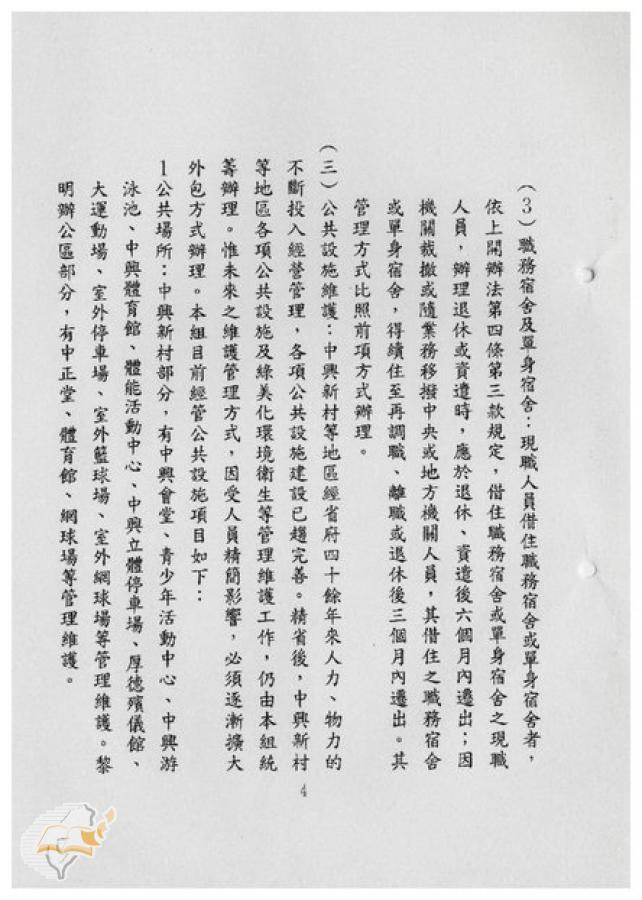 (3)職務宿舍及單身宿舍：現職人員借住職務宿舍或單身宿舍者，
依上開辦法第四條第三款規定，借住職務宿舍或單身宿舍之現職
人員，辦理退休或資遣時，應於退休、資遣後六個月內遷出；因
機關裁撤或隨業務移撥中央或地方機關人員，其借住之職務宿舍
或單身宿舍，得續住至再調職、離職或退休後三個月內遷出。其
管理方式比照前項方式辦理。
(三)公共設施維護：中興新村等地區經省府四十餘年來人力、物力的
不斷投入經營管理，各項公共設施建設已趨完善。精省後，中興新村
等地區各項公共設施及綠美化環境衛生等管理維護工作，仍由本組統
籌辦理。惟未來之維護管理方式，因受人員精簡影響，必須逐漸擴大
外包方式辦理。本組目前經管公共設施項目如下：
1公共場所：中興新村部分，有中興會堂、青少年活動中心、中興游
泳池、中興體育館、體能活動中心、中興立體停車場、厚德殯儀館、
大運動場、室外停車場、室外籃球場、室外網球場等管理維護。黎
明辦公區部分，有中正堂、體育館、網球場等管理維護。
4